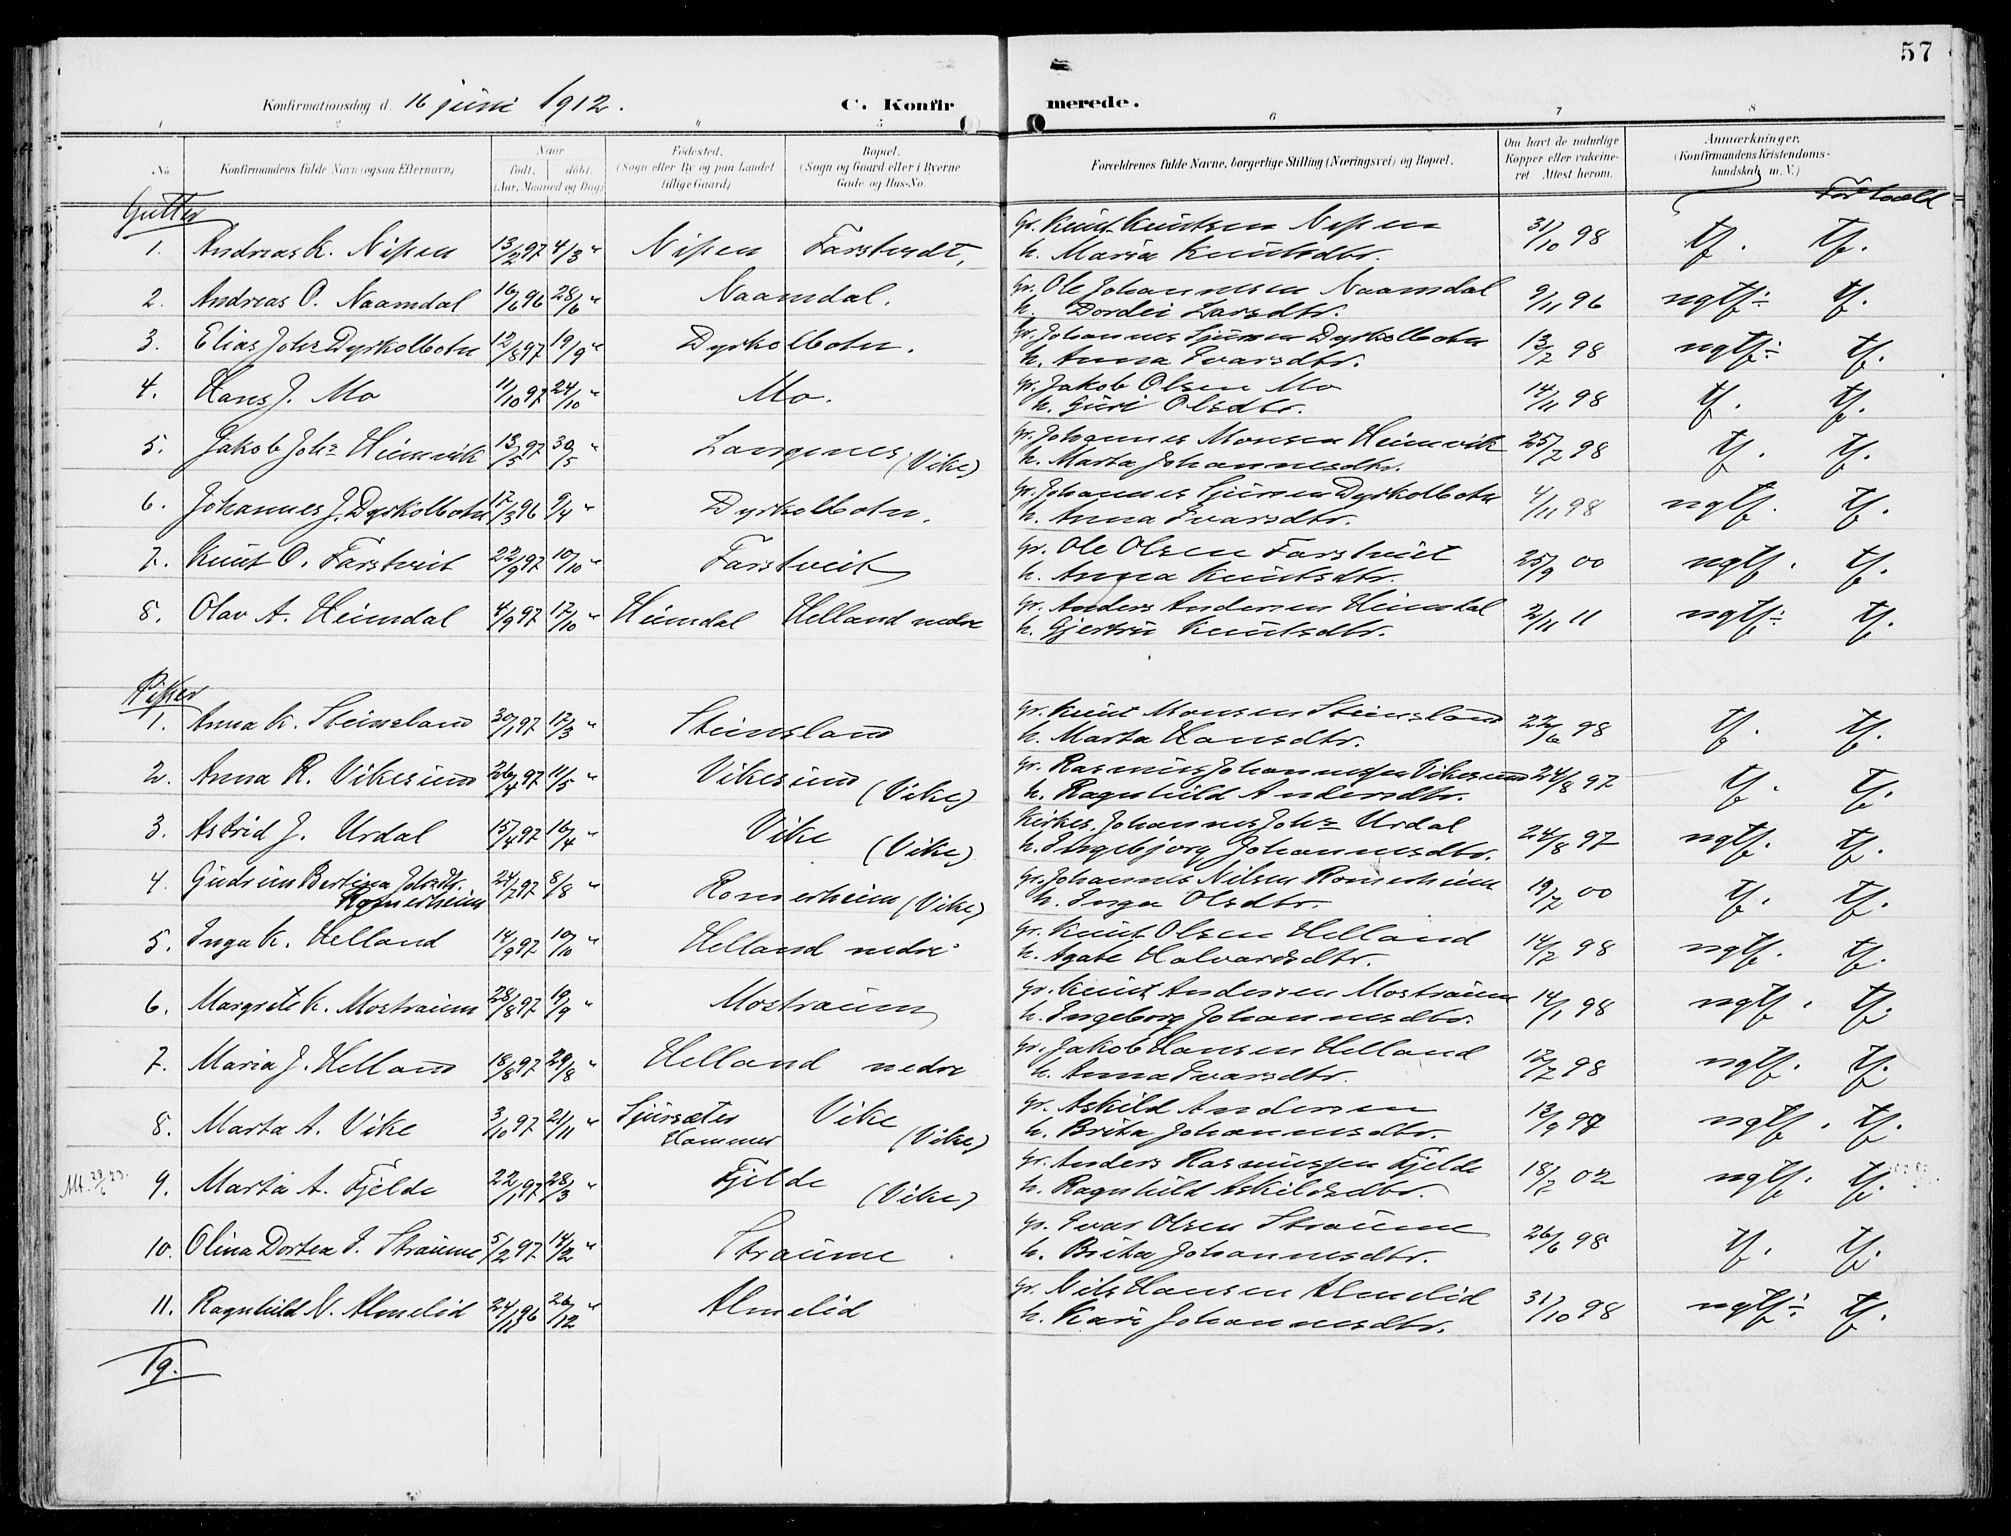 57
Konfirmationsdag d. 16 juni 1912. C. Konfir merede.
1 2 3 4 5 6 7 8
No. Konfirmandens fulde Navn (ogsaa Efternavn) Naar født, døbt. (Aar, Maaned og Dag) Fødested. (Sogn eller By og paa Landet tillige Gaard) Bopæl. (Sogn og Gaard eller i Byerne Gade og Hus-No. Forældrenes fulde Navne, borgerlige Stilling (Næringsvei) og Bopæl. Om havt de naturlige Kopper eller vakcineret. Attest herom. Anmærkninger, (Konfirmandens Kristendomskundskab m. V.)
Gutter Forhold
1. Andreas K. Nipen 13/2 97 4/3 " Nipen Farstvedt, Gr. Knut Knutsen Nipen 31/10 98 tf. tf.
h. Maria Knutsdtr.
2. Andreas O. Naamdal 16/6 96 28/6 " Naamdal. Gr. Ole Johannesen Naamdal 9/11 96 ngtf÷ tf.
h. Dordei Larsdtr.
3. Elias Johs Dyrkolbotn 12/8 97 19/9 " Dyrkolbotn. Gr. Johannes Sjursen Dyrkolbotn 13/7 98 ngtf÷ tf.
h. Anna Ivarsdtr.
4. Hans J. Mo 11/10 97 24/10 " Mo. Gr. Jakob Olsen Mo 14/11 98 tf. tf.
h. Guri Olsdtr.
5. Jakob Johs Heimvik 13/5 97 30/5 " Langenes (Vike) Gr. Johannes Monsen Heimvik 25/7 98 tf. tf.
h. Marta Johannesdtr.
6. Johannes J. Dyrkolbotn 17/3 96 9/4 " Dyrkolbotn. Gr. Johannes Sjursen Dyrkolbotn 4/11 98 ngtf. tf.
h. Anna Ivarsdtr.
7. Knut O. Farstveit 22/9 97 10/10 " Farstveit Gr. Ole Olsen Farstveit 25/9 00 ngtf. tf.
h. Anna Knutsdtr.
8. Olav A. Heimdal 4/9 97 17/10 " Heimdal Helland nedre Gr. Anders Andersen Heimdal 2/11 11 ngtf÷ tf.
h. Gjertru Knutsdtr.
Piker
1. Anna K. Steinsland 30/1 97 17/3 " Steinsland Gr. Knut Monsen Steinsland 22/6 98 tf. tf.
h. Marta Hansdtr.
2. Anna R. Vikesund 26/4 97 11/5 " Vikesund (Vike) Gr. Rasmus Johannessen Vikesund 24/8 97 tf. tf.
h. Ragnhild Andersdtr.
3. Astrid J. Urdal 15/4 97 16/4 " Vike (Vike) Kirkes. Johannes Johs Urdal 24/8 97 ngtf. tf.
h. Ingebjorg Johannesdtr.
4. Gudrun Bertina Johsdtr. Romerheim 24/7 97 8/8 " Romerheim (Vike) Gr. Johannes Nilsen Romerheim 19/7 00 tf. tf.
h. Inga Olsdtr.
5. Inga K. Helland 14/9 97 10/10 " Helland nedre Gr. Knut Olsen Helland 14/7 98 ngtf. tf.
h. Agate Halvardsdtr.
6. Margrete K. Mostraum 28/8 97 19/9 " Mostraum Gr. Knut Andersen Mostraum 14/1 98 ngtf. tf.
h. Ingeborg Johannesdtr.
7. Maria J. Helland 18/8 97 29/8 " Helland nedre Gr. Jakob Hansen Helland 12/7 98 ngtf. tf.
h. Anna Ivarsdtr.
8. Marta A. Vike 3/10 97 21/11 " Sjursæter Hammer Vike (Vike) Gr. Askild Andersen 13/9 97 ngtf. tf.
h. Brita Johannesdtr.
Att. 9. Marta A. Fjelde 22/1 97 28/3 " Fjelde (Vike) Gr. Anders Rasmussen Fjelde 18/7 02 ngtf. tf.
h. Ragnhild Askildsdtr.
10. Olina Dortea I. Straume 5/2 97 14/2 " Straume Gr. Ivar Olsen Straume 26/6 98 tf. tf.
h. Brita Johannesdtr.
11. Ragnhild N. Almelid 24/11 96 26/12 " Almelid Gr. Nils Hansen Almelid 31/10 98 ngtf÷ tf.
h. Kari Johannesdtr.
19.